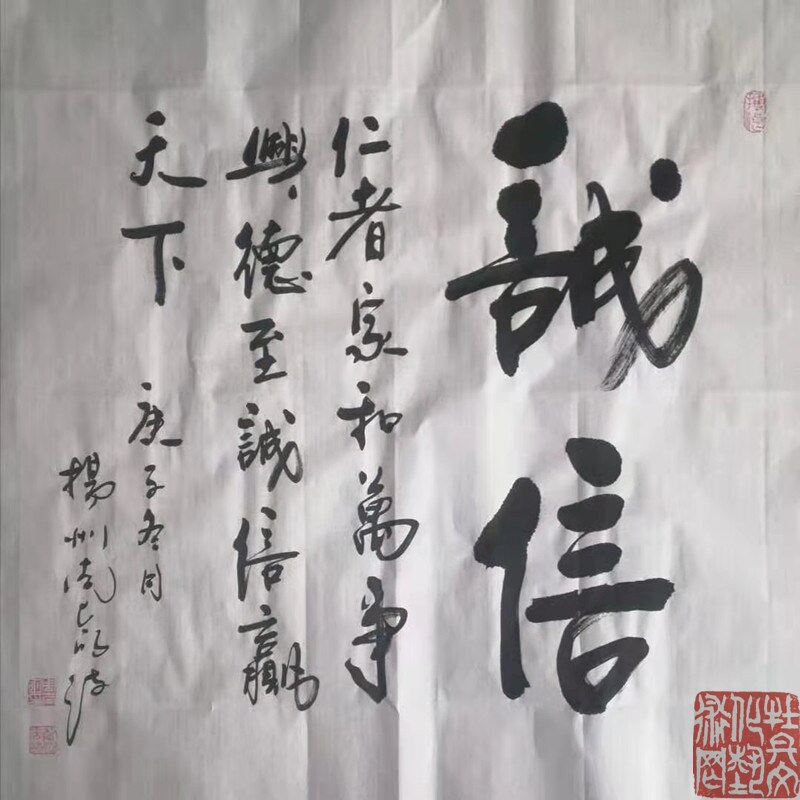 誠信
仁者家和萬事
興德至誠信贏
天下 庚子冬月
揚州